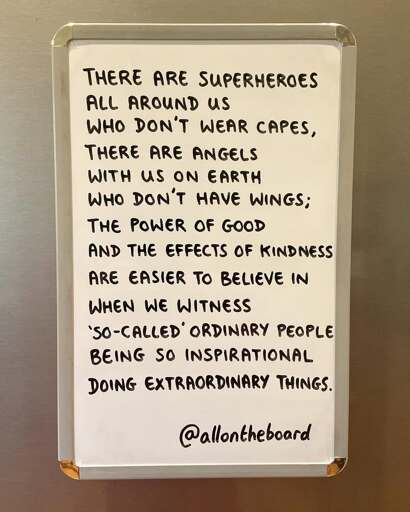 THERE ARE SUPERHEROES
ALL AROUND US
WHO DON'T WEAR CAPES,
THERE ARE ANGELS
WITH US ON EARTH
WHO DON'T HAVE WINGS;
THE POWER OF GOOD
AND THE EFFECTS OF KINDNESS
ARE EASIER TO BELIEVE IN
WHEN WE WITNESS
'SO-CALLED' ORDINARY PEOPLE
BEING SO INSPIRATIONAL
DOING EXTRAORDINARY THINGS.
@allontheboard